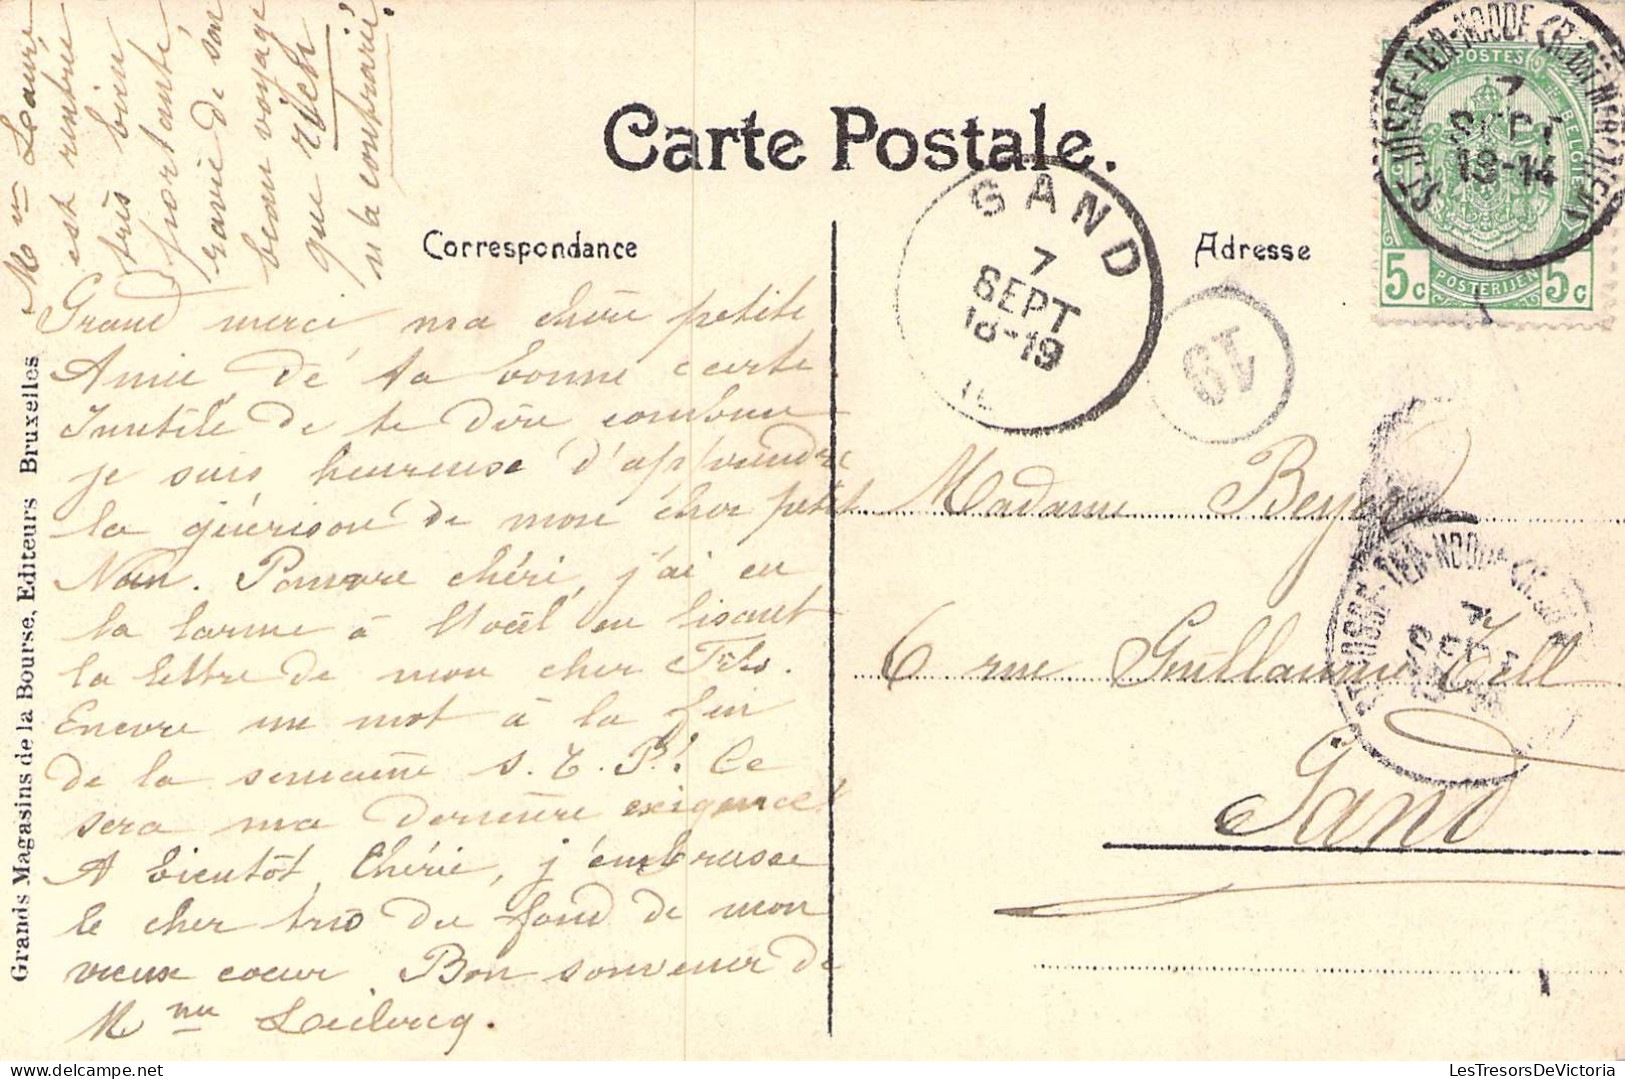 Carte Postale.
Correspondance
Adresse
Grand merci ma chère petite
Amie de ta bonne carte
Inutile de te dire combien
je suis heureuse d'apprendre
la guérison de mon cher petit
Nan. Pauvre chéri, j'ai eu
la larme à l'oeil en lisant
la lettre de mon cher Fils.
Encore un mot à la fin
de la semaine s. t. P.! Ce
sera ma dernière exigence!
A bientôt Chérie, j'embrasse
le cher trio du fond de mon
vieux coeur. Bon souvenir de
Mme Leclercq.
Mme
est rentrée
très bien
portante
ravie de son
beau voyage
que
n'a contrarié!
Madame Beyer
6 rue Guillaume Tell
Gand
GAND
7
SEPT
18-19
19
ST-JOSSE-TEN-NOODE
7
SEPT
13-14
POSTES
BELGIE
5c
POSTERIJEN
5c
ST-JOSSE-TEN-NOODE
7
SEPT
Grands Magasins de la Bourse, Editeurs Bruxelles
LesTresorsDeVictoria